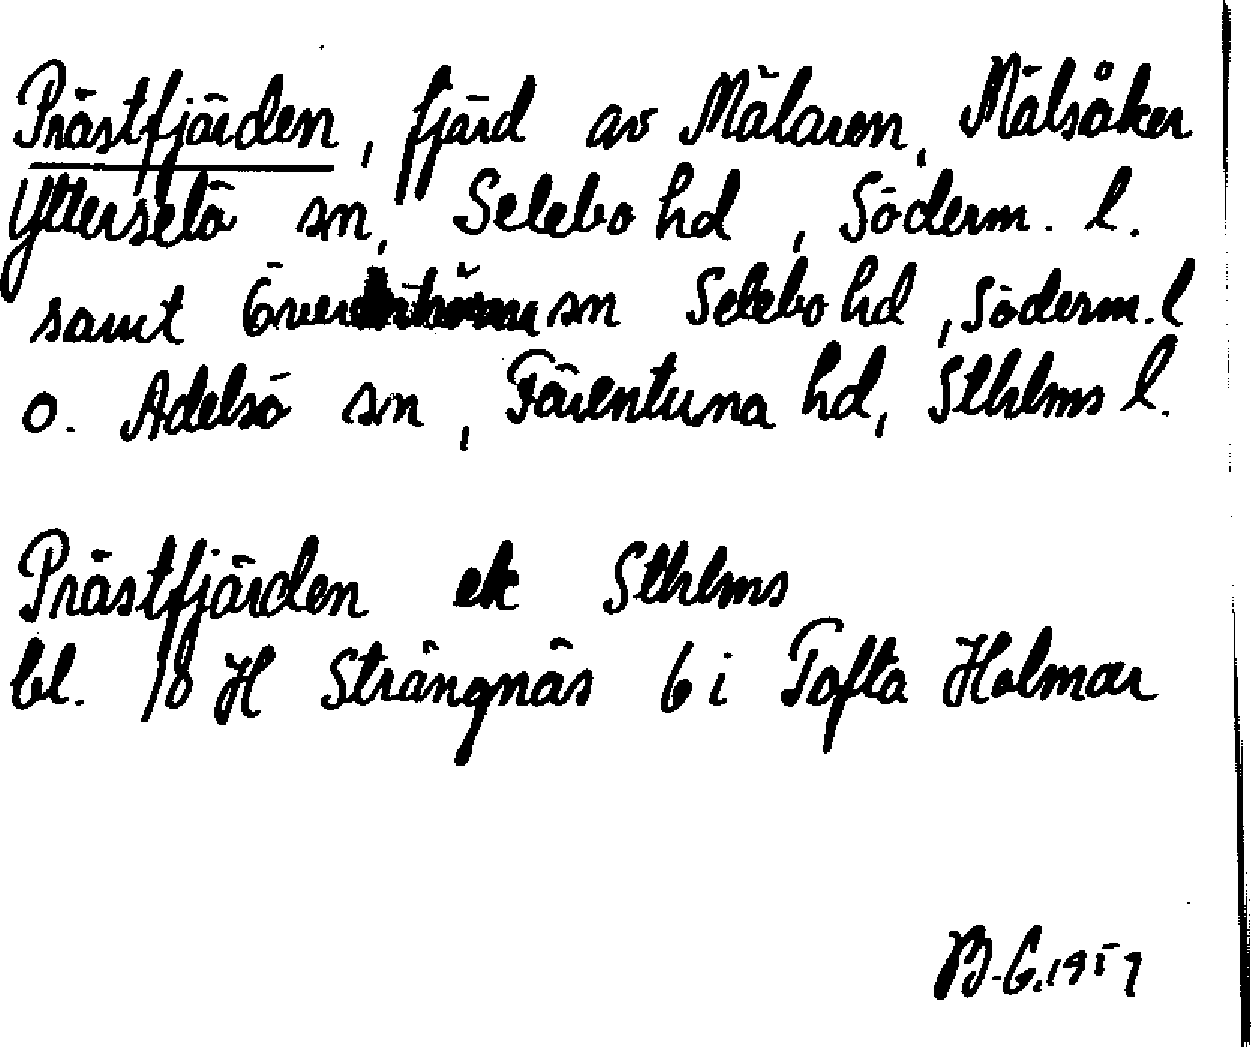 Prästfjärden, fjärd av Mälaren, Mälsåker
Ytterselö sn, Selebo hd, Söderm. l.
samt sn Selebo hd, Söderm. l
o. Adelsö sn, Färentuna hd, Sthlms l.
Prästfjärden ek Sthlms
bl. 18 H Strängnäs 6 i Tofta Holmar
B-G. 1957